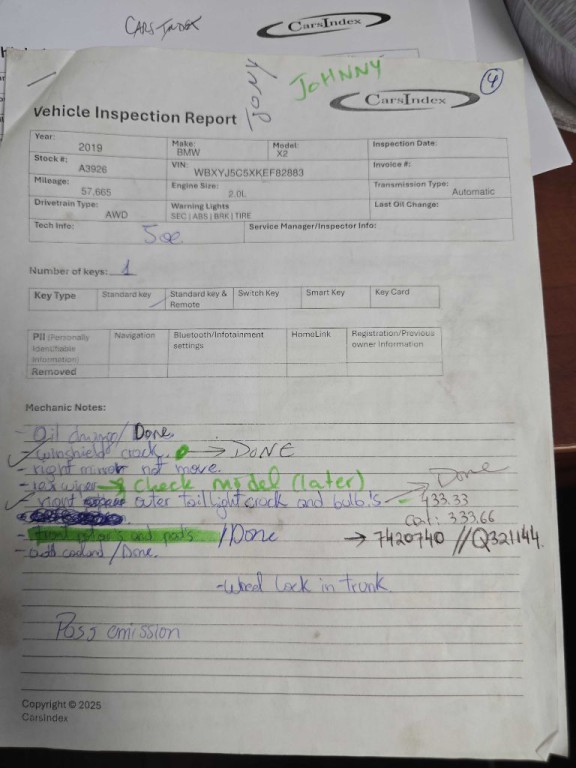 CARS INDEX
CarsIndex
Tony
JOHNNY
4
CarsIndex
Vehicle Inspection Report
Year: 2019 Make: BMW Model: X2 Inspection Date:
Stock #: A3926 VIN: WBXYJ5C5XKEF82883 Invoice #:
Mileage: 57,665 Engine Size: 2.0L Transmission Type: Automatic
Drivetrain Type: AWD Warning Lights SEC | ABS | BRK | TIRE Last Oil Change:
Tech Info: Joe Service Manager/Inspector Info:
Number of keys: 1
Key Type Standard key Standard key & Remote Switch Key Smart Key Key Card
PII (Personally Identifiable Information) Navigation Bluetooth/Infotainment settings HomeLink Registration/Previous owner Information
Removed
Mechanic Notes:
- Oil change / Done.
- windshield crack. → DONE
- right mirror not move.
- rear wiper → Check model (later)
- right outer taillight crack and bulb's - 433.33 Done
333.66
- front rotor's and pads /Done → 7420740 // Q321144.
- add coolant / Done.
- Wheel Lock in trunk
Pass emission
Copyright © 2025
CarsIndex